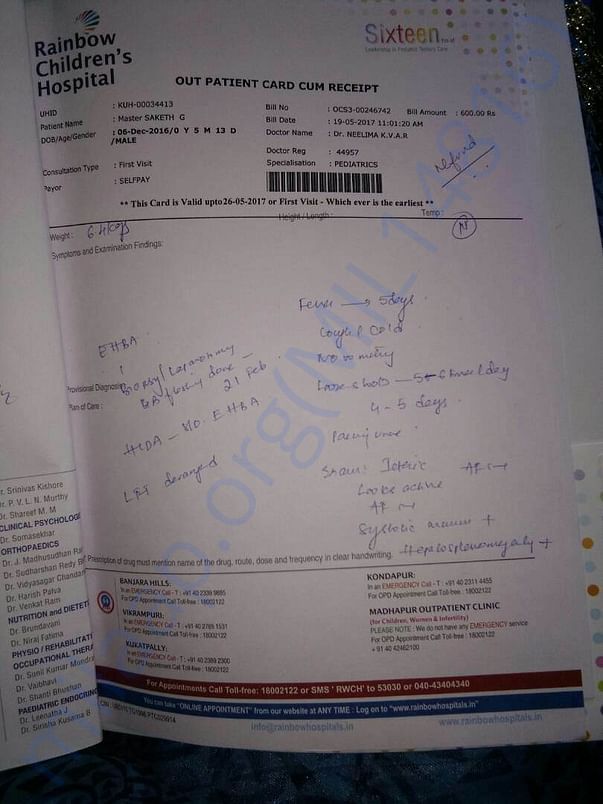 Rainbow
Children's
Hospital
Sixteen
OUT PATIENT CARD CUM RECEIPT
UHID : KUH-00034413
Patient Name : Master SAKETH G
DOB/Age/Gender : 06-Dec-2016/0 Y 5 M 13 D
/MALE
Bill No : OCS3-00246742 Bill Amount : 600.00 Rs
Bill Date : 19-05-2017 11:01:20 AM
Doctor Name : Dr. NEELIMA K.V.A.R
Doctor Reg : 44957
Specialisation : PEDIATRICS
Consultation Type : First Visit
Payor : SELFPAY
refund
** This Card is Valid upto26-05-2017 or First Visit - Which ever is the earliest **
Weight : 6.4 kgs
Height / Length :
Temp :
Symptoms and Examination Findings:
Fever → 5 days
Cough Cold
No vomiting
Loose stools — 5-6 times/day
4-5 days
Passing urine
Icteric
Looks active
Systolic murmur +
Hepatosplenomegaly +
EHBA
Provisional Diagnosis
Biopsy/Laparotomy
done —
21 Feb
Plan of Care :
EHBA
LFT deranged
Prescription of drug must mention name of the drug, route, dose and frequency in clear handwriting.
r. Srinivas Kishore
r. P. V. L. N. Murthy
Dr. Shareef M. M
CLINICAL PSYCHOLOG
Dr. Somasekhar
ORTHOPAEDICS
Dr. J. Madhusudhan
Dr. Sudharshan Redy B
Dr. Vidyasagar Chandan
Dr. Harish Patva
Dr. Venkat Ram
NUTRITION and DIETET
Dr. Brundavani
Dr. Niraj Fatima
PHYSIO / REHABILITAT
OCCUPATIONAL THERA
Dr. Sunil Kumar Mundra
Dr. Vaibhavi
Dr. Shanti Bhushan
PAEDIATRIC ENDOCRINO
Dr. Leenatha J
Dr. Sirisha Kusama B
BANJARA HILLS:
In an EMERGENCY Call - T : +91 40 2339 9885
For OPD Appointment Call Toll-free : 18002122
VIKRAMPURI:
In an EMERGENCY Call - T : +91 40 2789 1531
For OPD Appointment Call Toll-free : 18002122
KUKATPALLY:
In an EMERGENCY Call - T : +91 40 2389 2300
For OPD Appointment Call Toll-free : 18002122
KONDAPUR:
In an EMERGENCY Call - T : +91 40 2311 4455
For OPD Appointment Call Toll-free : 18002122
MADHAPUR OUTPATIENT CLINIC
(for Children, Women & Infertility)
PLEASE NOTE : We do not have any EMERGENCY service
For OPD Appointment Call Toll-free : 18002122
+ 91 40 42462100
For Appointments Call Toll-free: 18002122 or SMS 'RWCH' to 53030 or 040-43404340
You can take "ONLINE APPOINTMENT" from our website at ANY TIME : Log on to "www.rainbowhospitals.in"
info@rainbowhospitals.in
www.rainbowhospitals.in